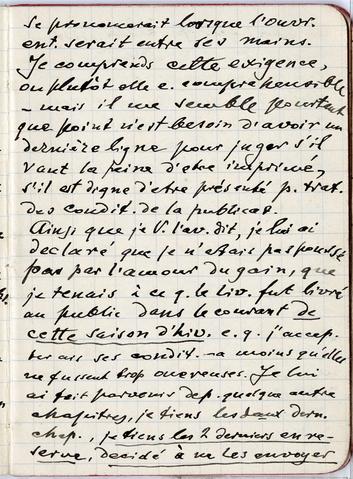 se prononcerait lorsque l'ouvr.
ent. serait entre ses mains.
Je comprends cette exigence,
ou plutôt elle e. compréhensible
– mais il me semble pourtant
que point n'est besoin d'avoir un
dernière ligne pour juger s'il
vaut la peine d'être imprimé,
s'il est digne d'être présenté p. trat.
des condit. de la publicat.
Ainsi que je l'av. dit, je lui ai
déclaré que je n'étais pas poussé
pas par l'amour du gain, que
je tenais à ce q. le liv. fut livré
au public dans le courant de
cette saison d'hiv. e. q. j'accep
terais ses condit. – à moins qu'elles
ne fussent trop onéreuses. Je lui
ai fait parvenir dep. quelque autre
chapitres, je tiens les deux dern.
chap., je tiens les 2 derniers en re-
serve, décidé à ne les envoyer